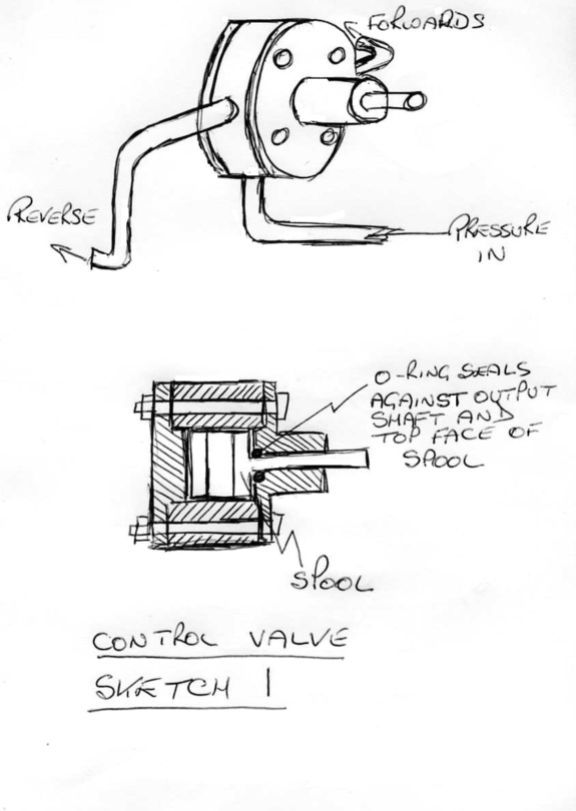 FORWARDS
REVERSE
PRESSURE
IN
O-RING SEALS
AGAINST OUTPUT
SHAFT AND
TOP FACE OF
SPOOL
SPOOL
CONTROL VALVE
SKETCH 1